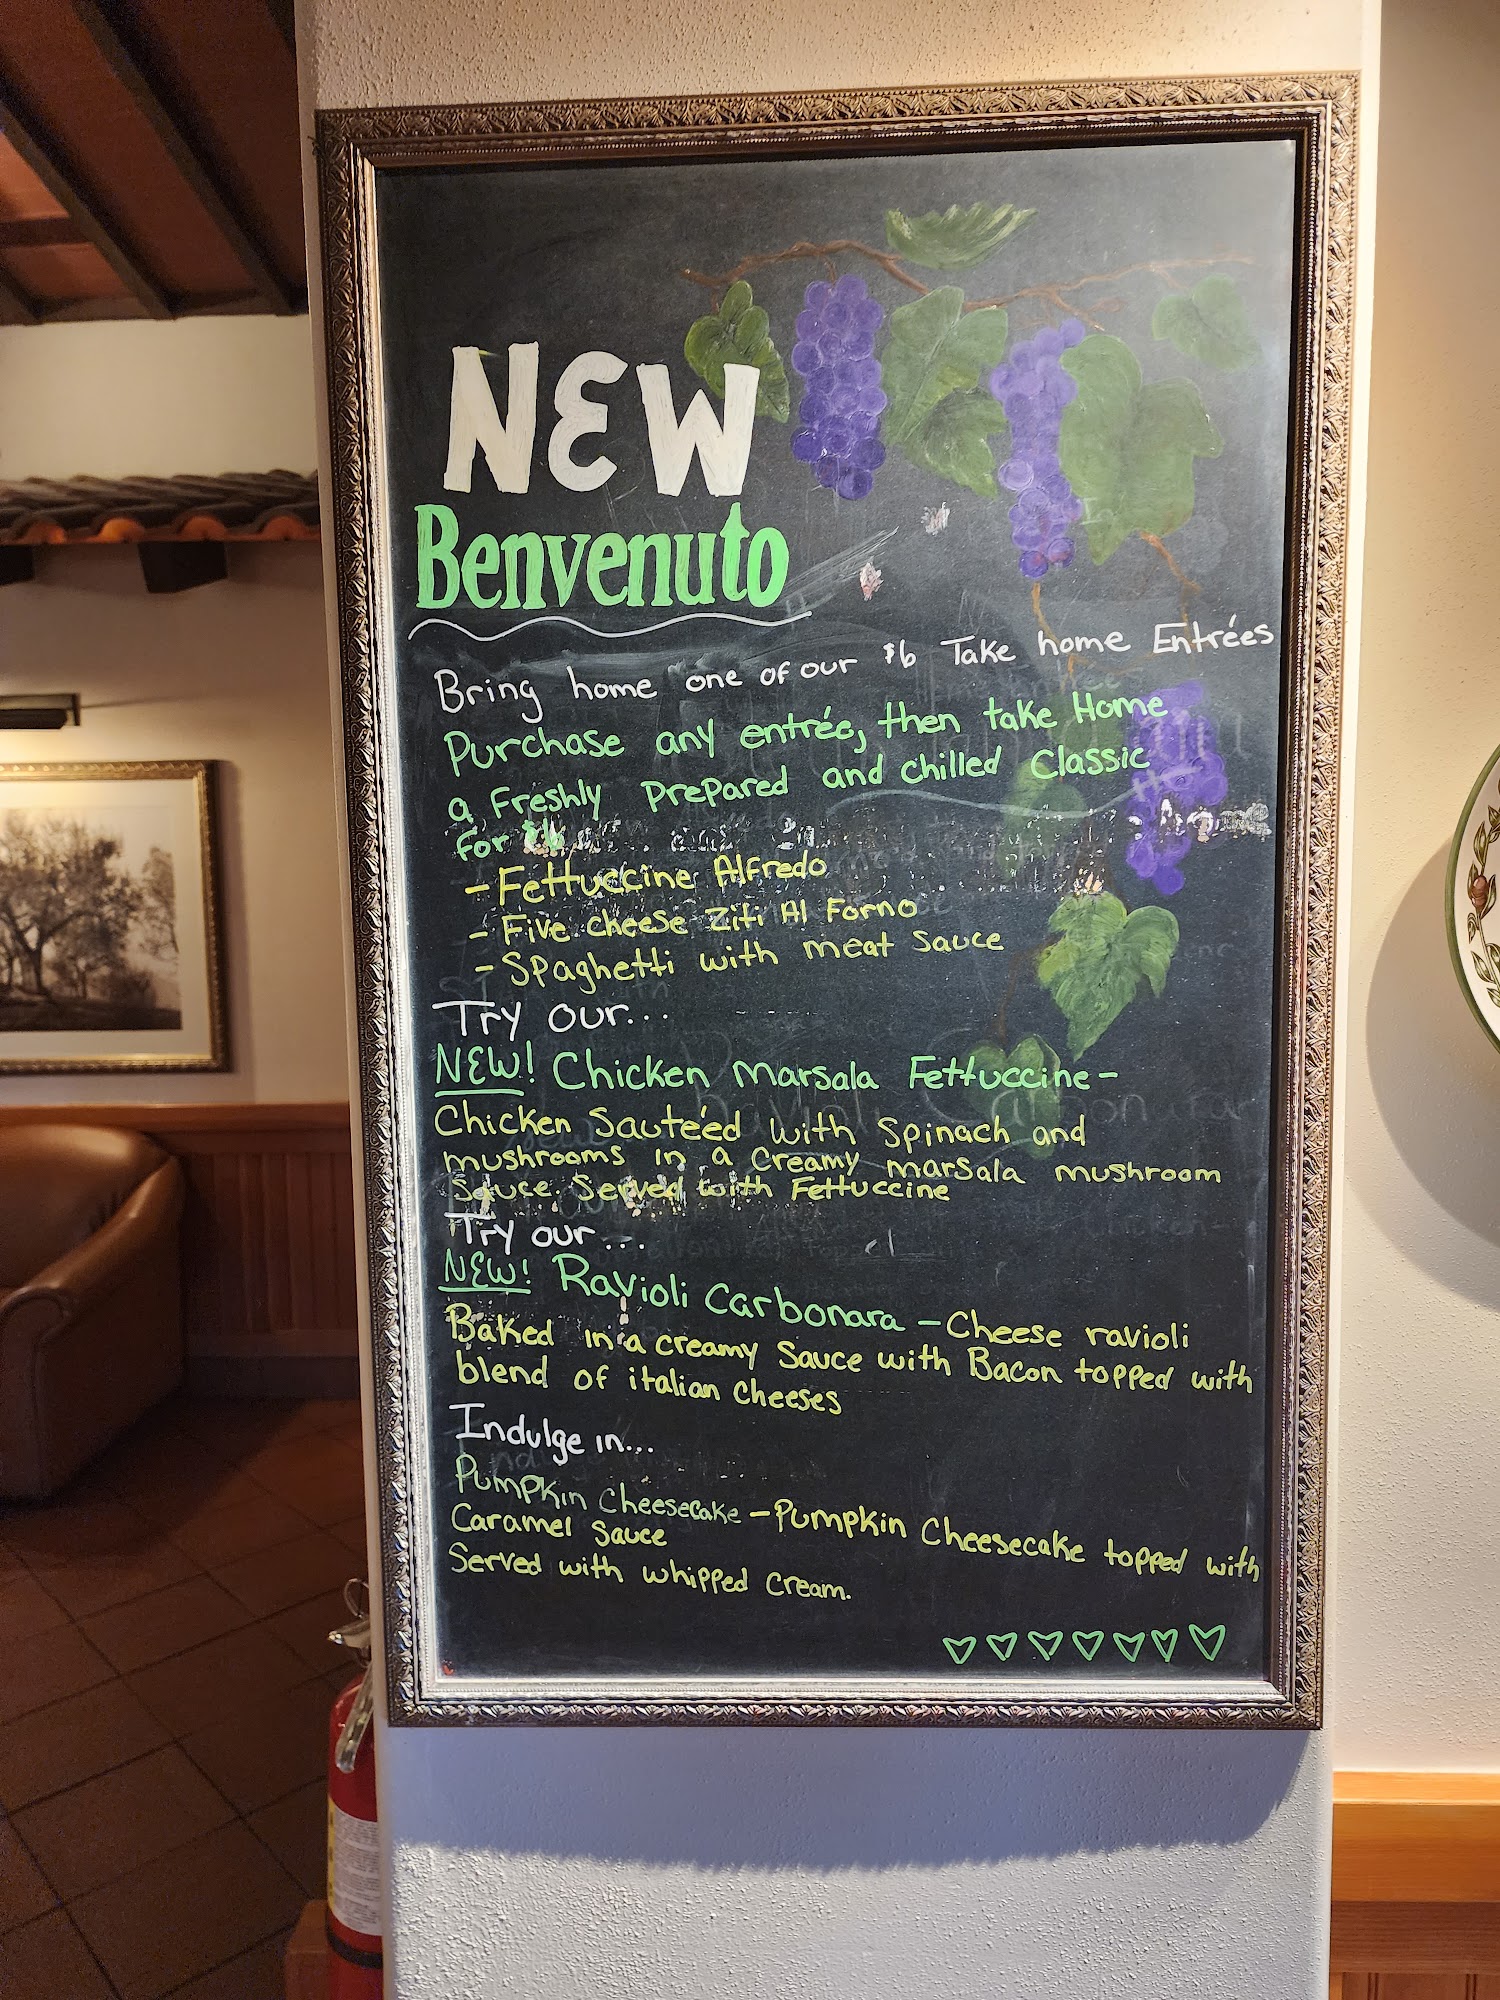 NEW
Benvenuto
Bring home one of our $6 Take home Entrées
Purchase any entrée, then take Home
a Freshly Prepared and chilled Classic
for $6
- Fettuccine Alfredo
- Five cheese Ziti Al Forno
- Spaghetti with meat Sauce
Try our...
NEW! Chicken Marsala Fettuccine -
Chicken Sauteéd with Spinach and
mushrooms in a creamy marsala mushroom
Sauce. Served with Fettuccine
Try our...
NEW! Ravioli Carbonara - Cheese ravioli
Baked in a creamy Sauce with Bacon topped with
blend of italian cheeses
Indulge in...
Pumpkin Cheesecake - Pumpkin Cheesecake topped with
Caramel Sauce
Served with whipped cream.